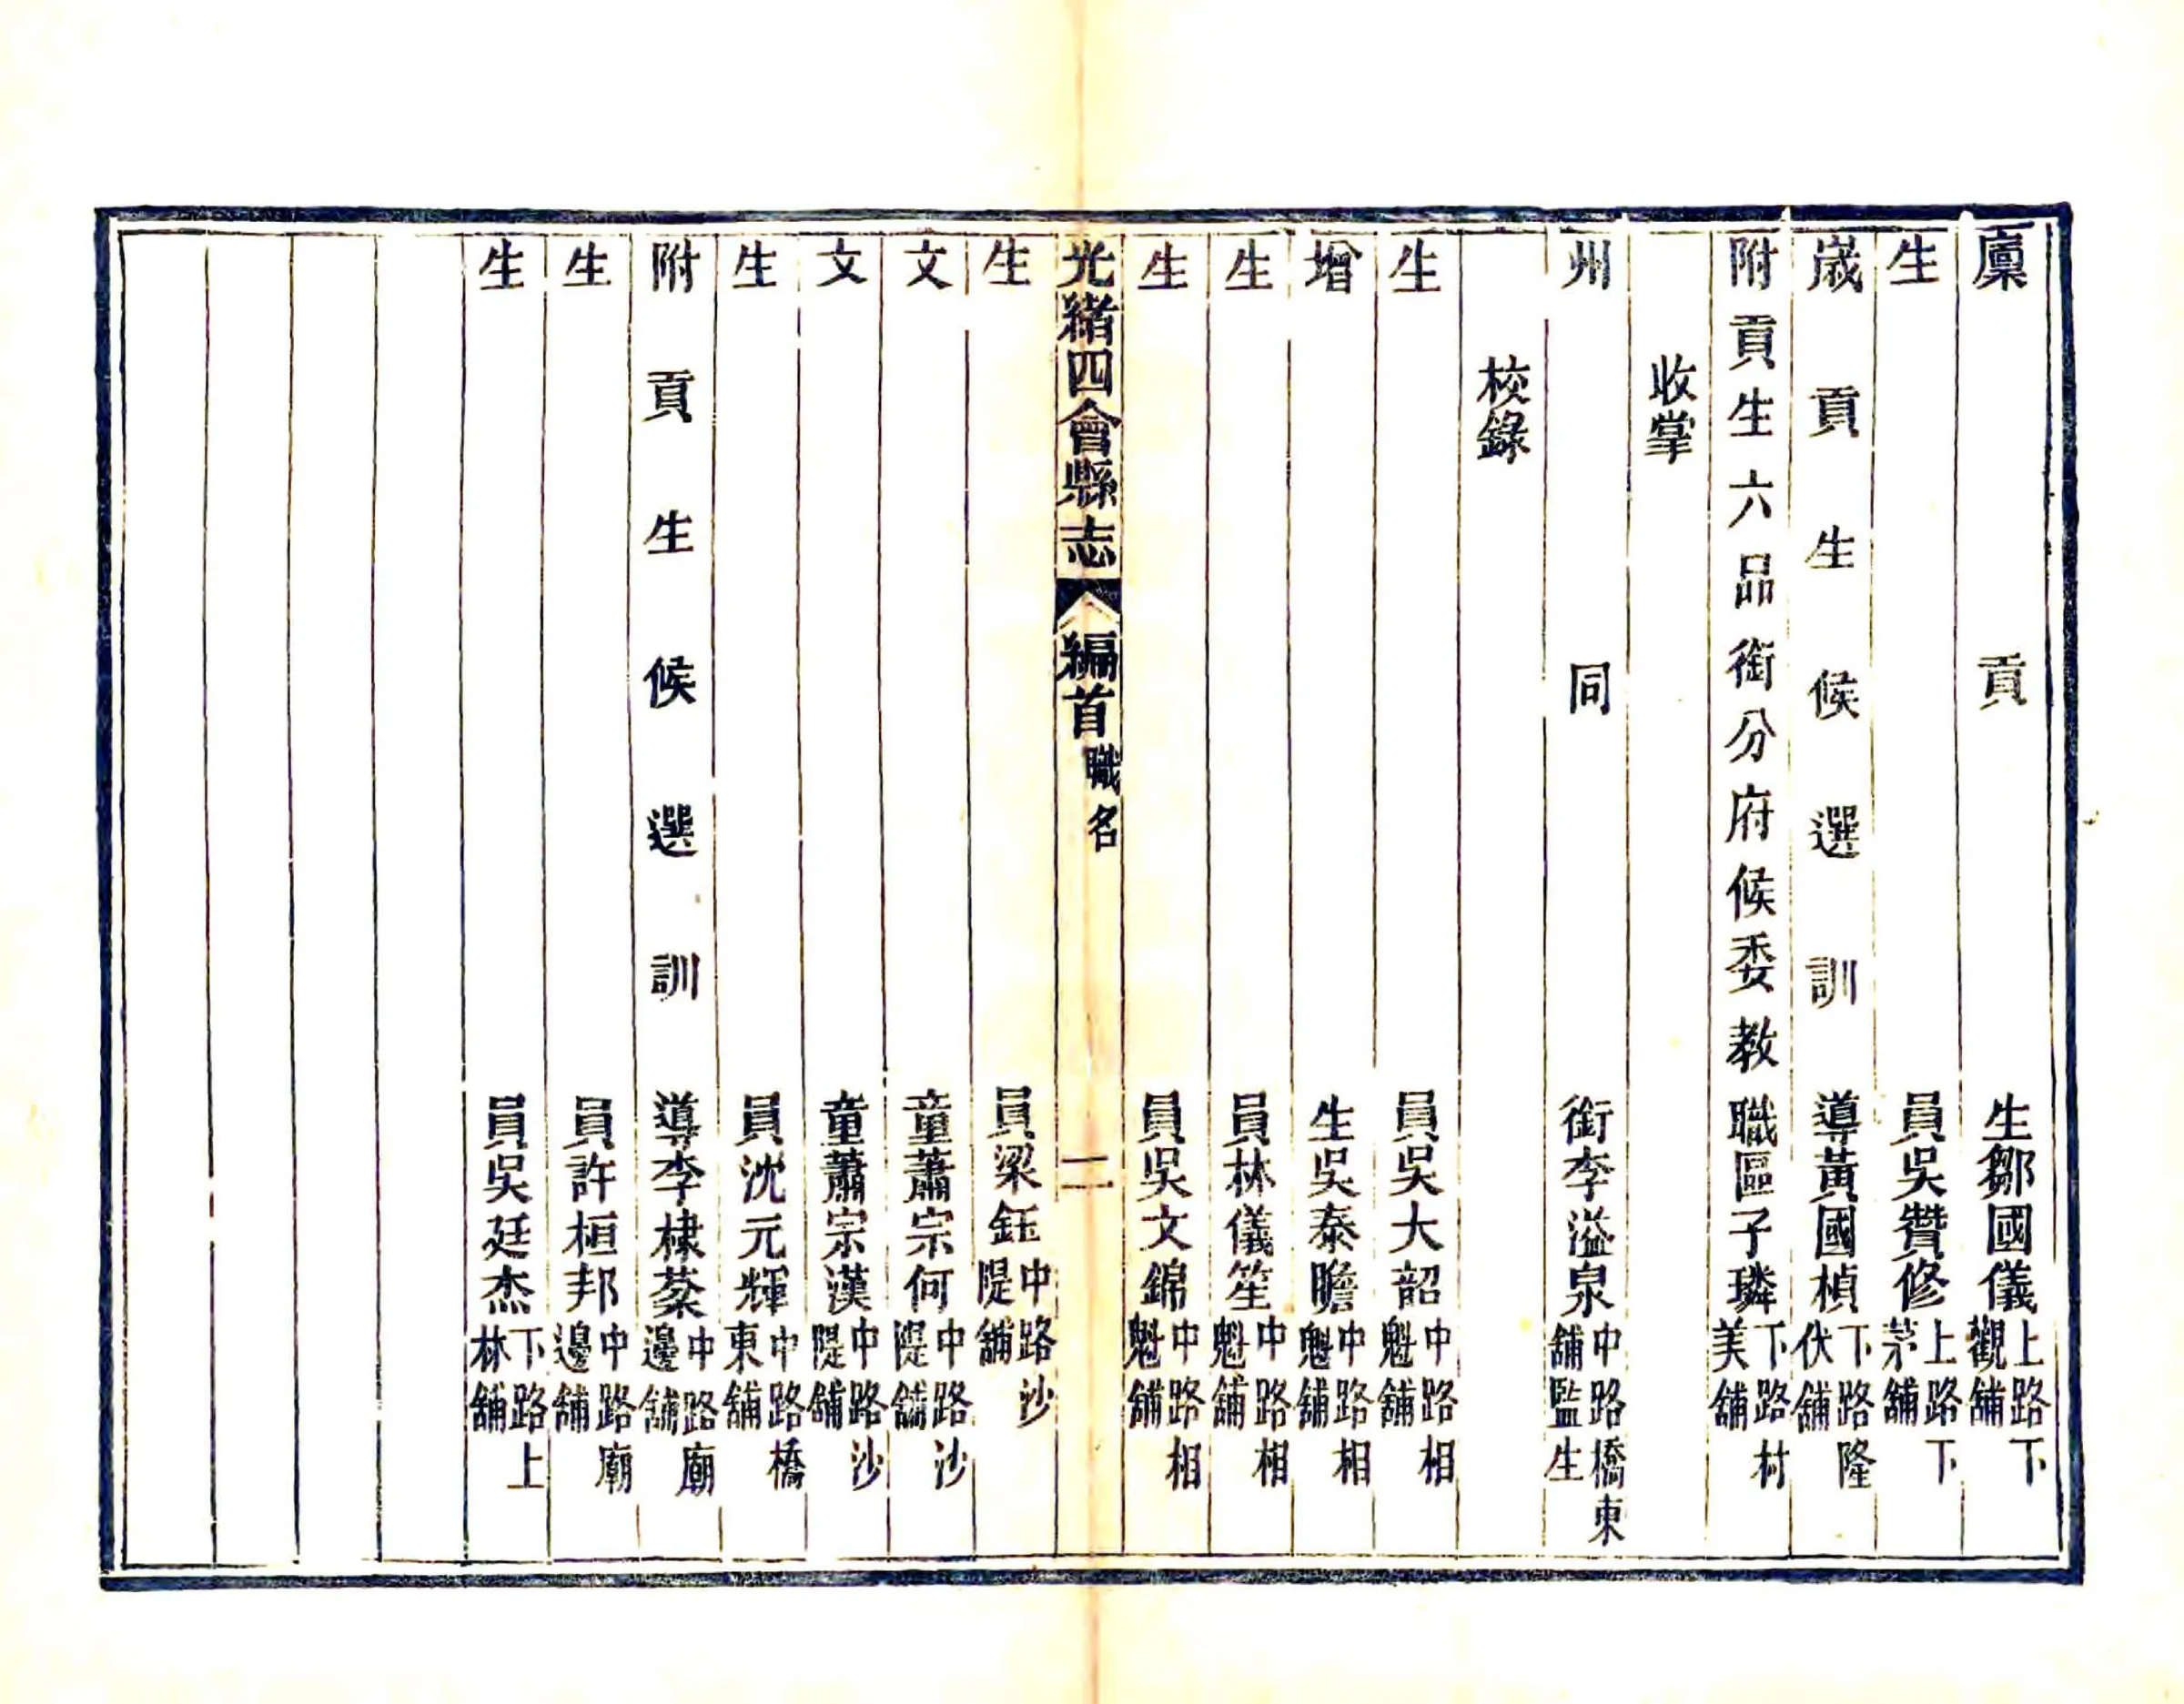 廩貢生鄒國儀上路下觀舖
生員吳贊修上路下茅舖
歲貢生候選訓導黃國楨下路隆伏舖
附貢生六品銜分府候委教職區子璘下路村美舖
收掌
州同銜李溢泉中路橋東舖監生
校錄
生員吳大韶中路相魁舖
增生吳泰瞻中路相魁舖
生員林儀笙中路相魁舖
生員吳文錦中路相魁舖
光緒四會縣志 編首 職名 二
生員梁鈺中路沙隄舖
文童蕭宗何中路沙隄舖
文童蕭宗漢中路沙隄舖
生員沈元輝中路橋東舖
附貢生候選訓導李棣棻中路廟邊舖
生員許桓邦中路廟邊舖
生員吳廷杰下路上林舖